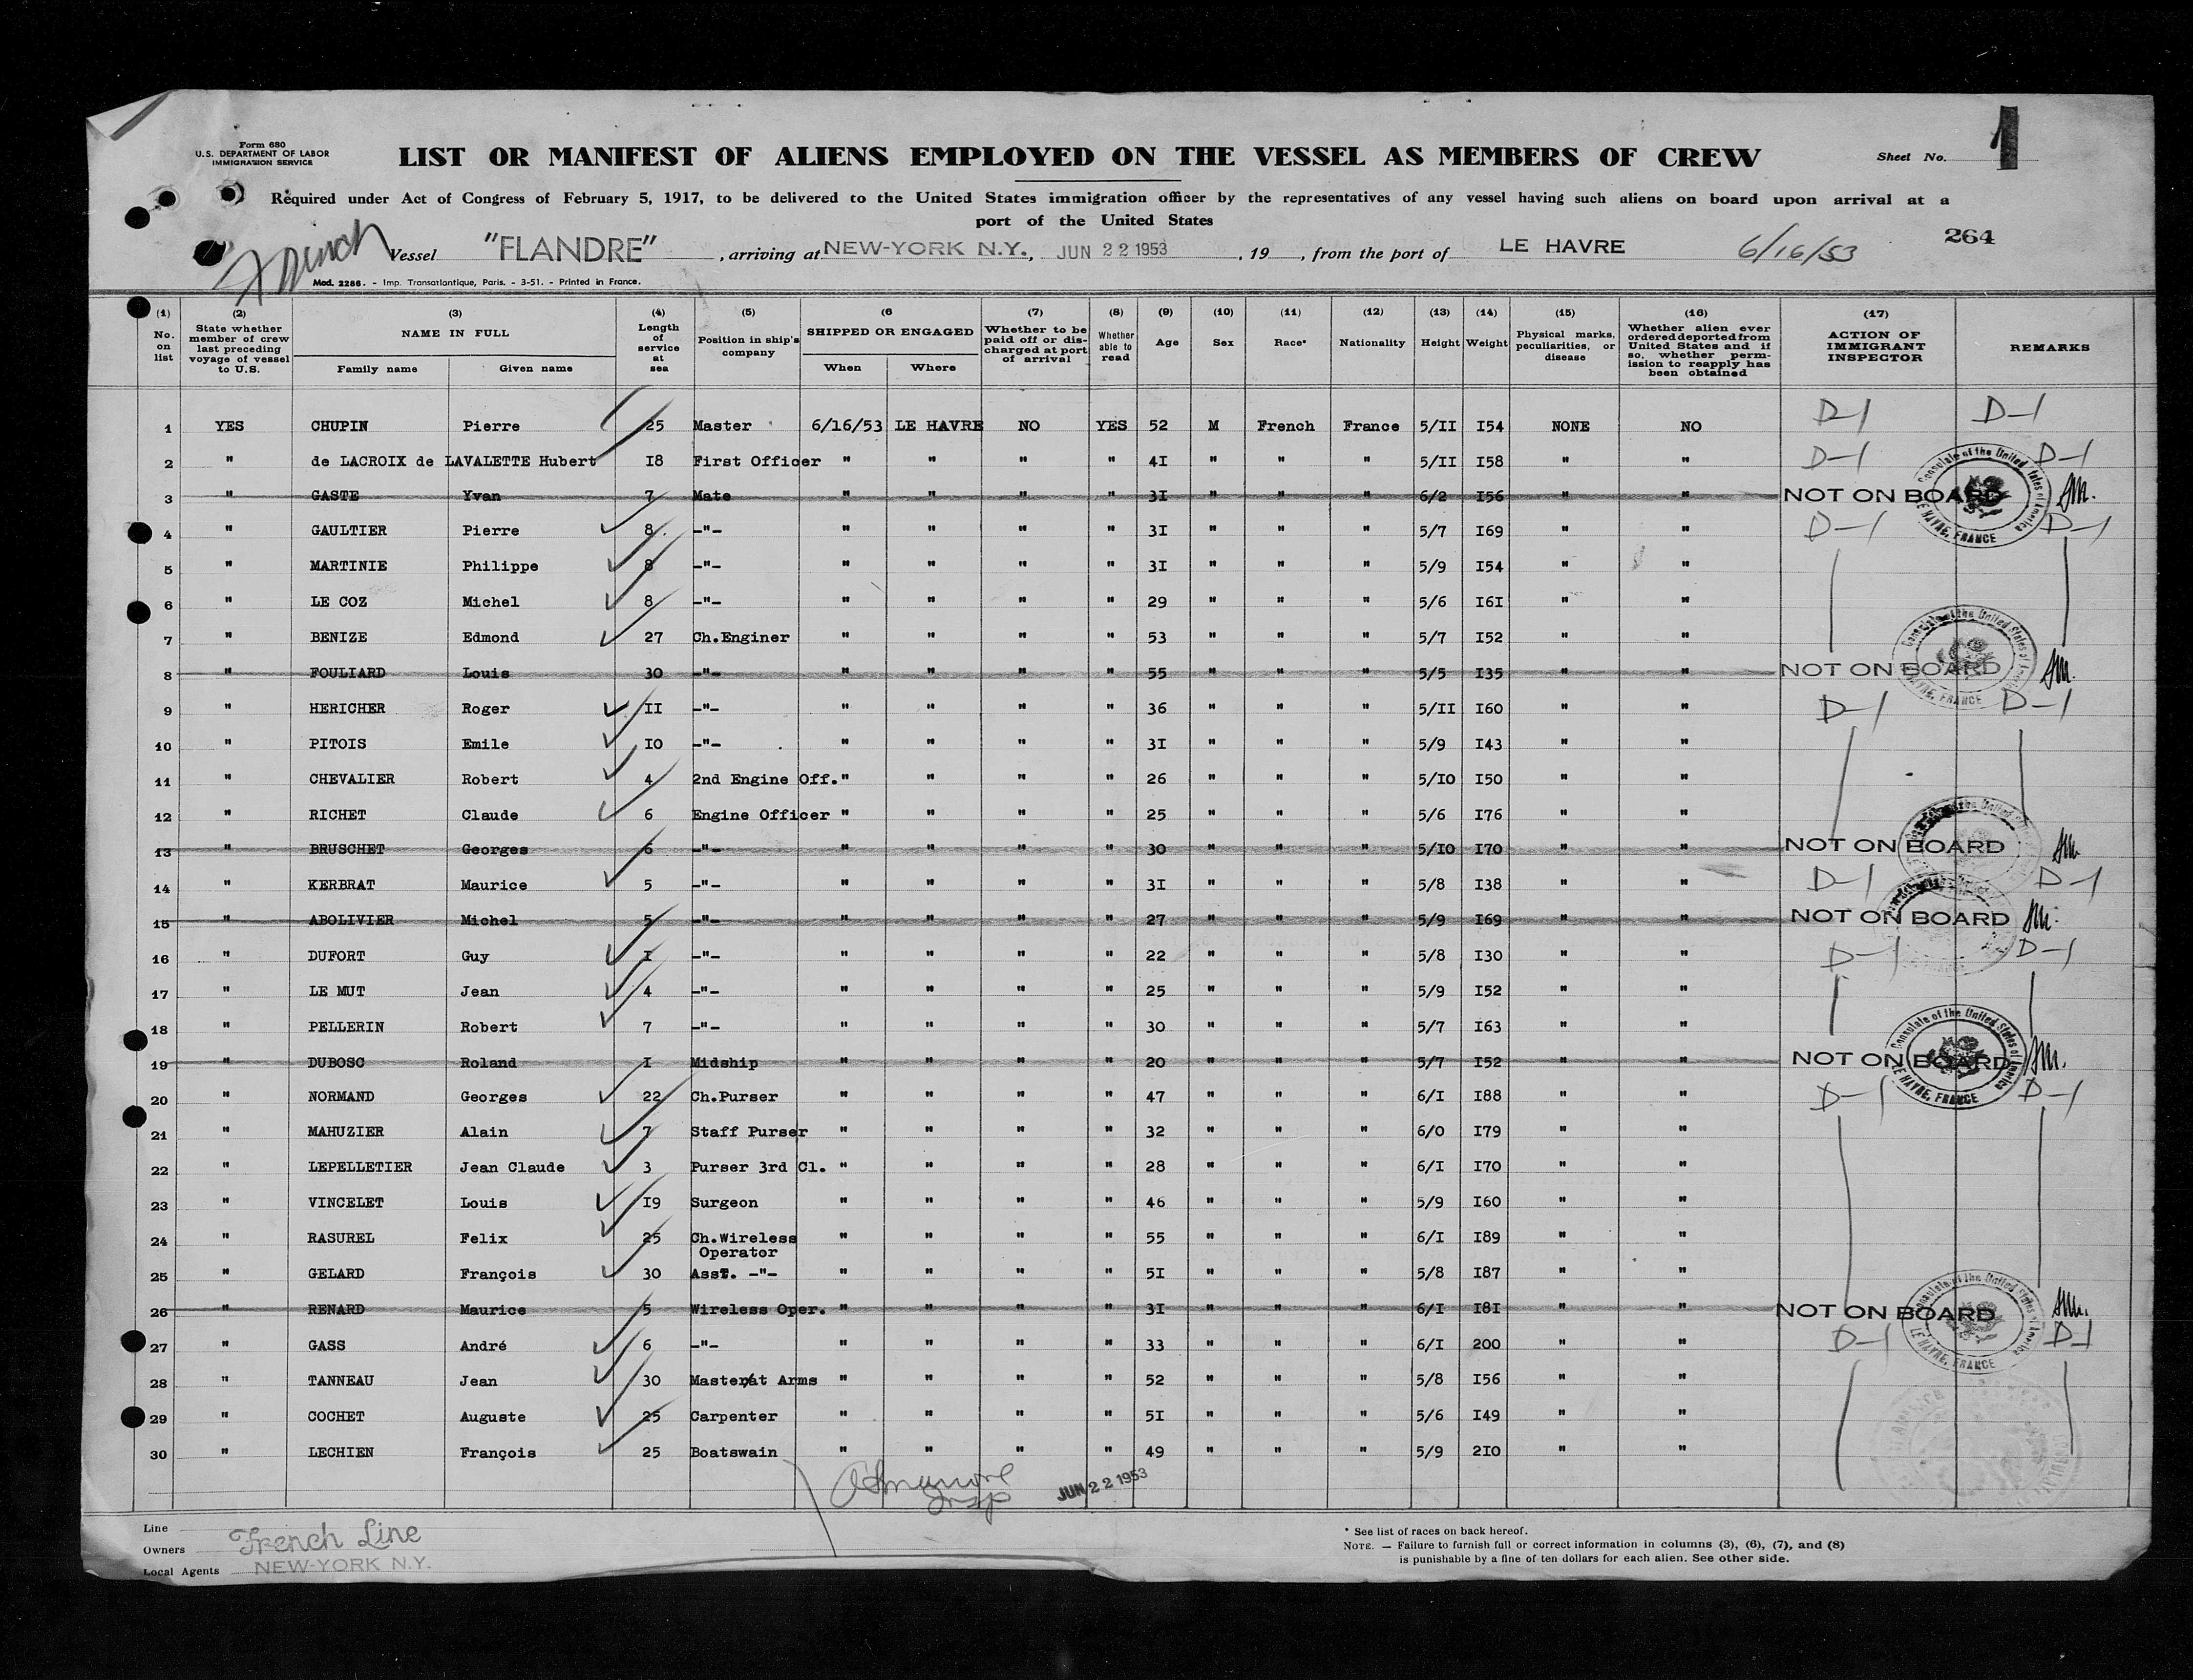 Form 680
U.S. DEPARTMENT OF LABOR
IMMIGRATION SERVICE
LIST OR MANIFEST OF ALIENS EMPLOYED ON THE VESSEL AS MEMBERS OF CREW
Sheet No. 1
Required under Act of Congress of February 5, 1917, to be delivered to the United States immigration officer by the representatives of any vessel having such aliens on board upon arrival at a
port of the United States
264
French Vessel "FLANDRE", arriving at NEW-YORK N.Y., JUN 22 1953, 19 , from the port of LE HAVRE 6/16/53
Mod. 2286. - Imp. Transatlantique, Paris. - 3-51. - Printed in France.
(1) No. on list (2) State whether member of crew last preceding voyage of vessel to U.S. (3) NAME IN FULL Family name Given name (4) Length of service at sea (5) Position in ship's company (6 SHIPPED OR ENGAGED When Where (7) Whether to be paid off or discharged at port of arrival (8) Whether able to read (9) Age (10) Sex (11) Race* (12) Nationality (13) Height (14) Weight (15) Physical marks, peculiarities, or disease (16) Whether alien ever ordered deported from United States and if so, whether permission to reapply has been obtained (17) ACTION OF IMMIGRANT INSPECTOR REMARKS
1 YES CHUPIN Pierre 25 Master 6/16/53 LE HAVRE NO YES 52 M French France 5/II I54 NONE NO D-1 D-1
2 " de LACROIX de LAVALETTE Hubert I8 First Officer " " " " 4I " " " 5/II I58 " " D-1 D-1
3 " GASTE Yvan 7 Mate " " " " 3I " " " 6/2 I56 " " NOT ON BOARD
4 " GAULTIER Pierre 8 -"- " " " " 3I " " " 5/7 I69 " " D-1 D-1
5 " MARTINIE Philippe 8 -"- " " " " 3I " " " 5/9 I54 " "
6 " LE COZ Michel 8 -"- " " " " 29 " " " 5/6 I6I " "
7 " BENIZE Edmond 27 Ch.Enginer " " " " 53 " " " 5/7 I52 " "
8 " FOULIARD Louis 30 -"- " " " " 55 " " " 5/5 I35 " " NOT ON BOARD
9 " HERICHER Roger II -"- " " " " 36 " " " 5/II I60 " " D-1 D-1
10 " PITOIS Emile IO -"- " " " " 3I " " " 5/9 I43 " "
11 " CHEVALIER Robert 4 2nd Engine Off. " " " " 26 " " " 5/IO I50 " "
12 " RICHET Claude 6 Engine Officer " " " " 25 " " " 5/6 I76 " "
13 " BRUSCHET Georges 6 -"- " " " " 30 " " " 5/IO I70 " " NOT ON BOARD
14 " KERBRAT Maurice 5 -"- " " " " 3I " " " 5/8 I38 " " D-1 D-1
15 " ABOLIVIER Michel 5 -"- " " " " 27 " " " 5/9 I69 " " NOT ON BOARD
16 " DUFORT Guy I -"- " " " " 22 " " " 5/8 I30 " " D-1 D-1
17 " LE MUT Jean 4 -"- " " " " 25 " " " 5/9 I52 " "
18 " PELLERIN Robert 7 -"- " " " " 30 " " " 5/7 I63 " "
19 " DUBOSC Roland I Midship " " " " 20 " " " 5/7 I52 " " NOT ON BOARD
20 " NORMAND Georges 22 Ch.Purser " " " " 47 " " " 6/I I88 " " D-1 D-1
21 " MAHUZIER Alain 7 Staff Purser " " " " 32 " " " 6/0 I79 " "
22 " LEPELLETIER Jean Claude 3 Purser 3rd Cl. " " " " 28 " " " 6/I I70 " "
23 " VINCELET Louis I9 Surgeon " " " " 46 " " " 5/9 I60 " "
24 " RASUREL Felix 25 Ch.Wireless Operator " " " " 55 " " " 6/I I89 " "
25 " GELARD François 30 Asst. -"- " " " " 5I " " " 5/8 I87 " "
26 " RENARD Maurice 5 Wireless Oper. " " " " 3I " " " 6/I I8I " " NOT ON BOARD
27 " GASS André 6 -"- " " " " 33 " " " 6/I 200 " " D-1 D-1
28 " TANNEAU Jean 30 Master at Arms " " " " 52 " " " 5/8 I56 " "
29 " COCHET Auguste 25 Carpenter " " " " 5I " " " 5/6 I49 " "
30 " LECHIEN François 25 Boatswain " " " " 49 " " " 5/9 2I0 " "
Consulate of the United States of America
LE HAVRE, FRANCE
JUN 22 1953
Line
Owners French Line
Local Agents NEW-YORK N.Y.
* See list of races on back hereof.
NOTE. — Failure to furnish full or correct information in columns (3), (6), (7), and (8)
is punishable by a fine of ten dollars for each alien. See other side.